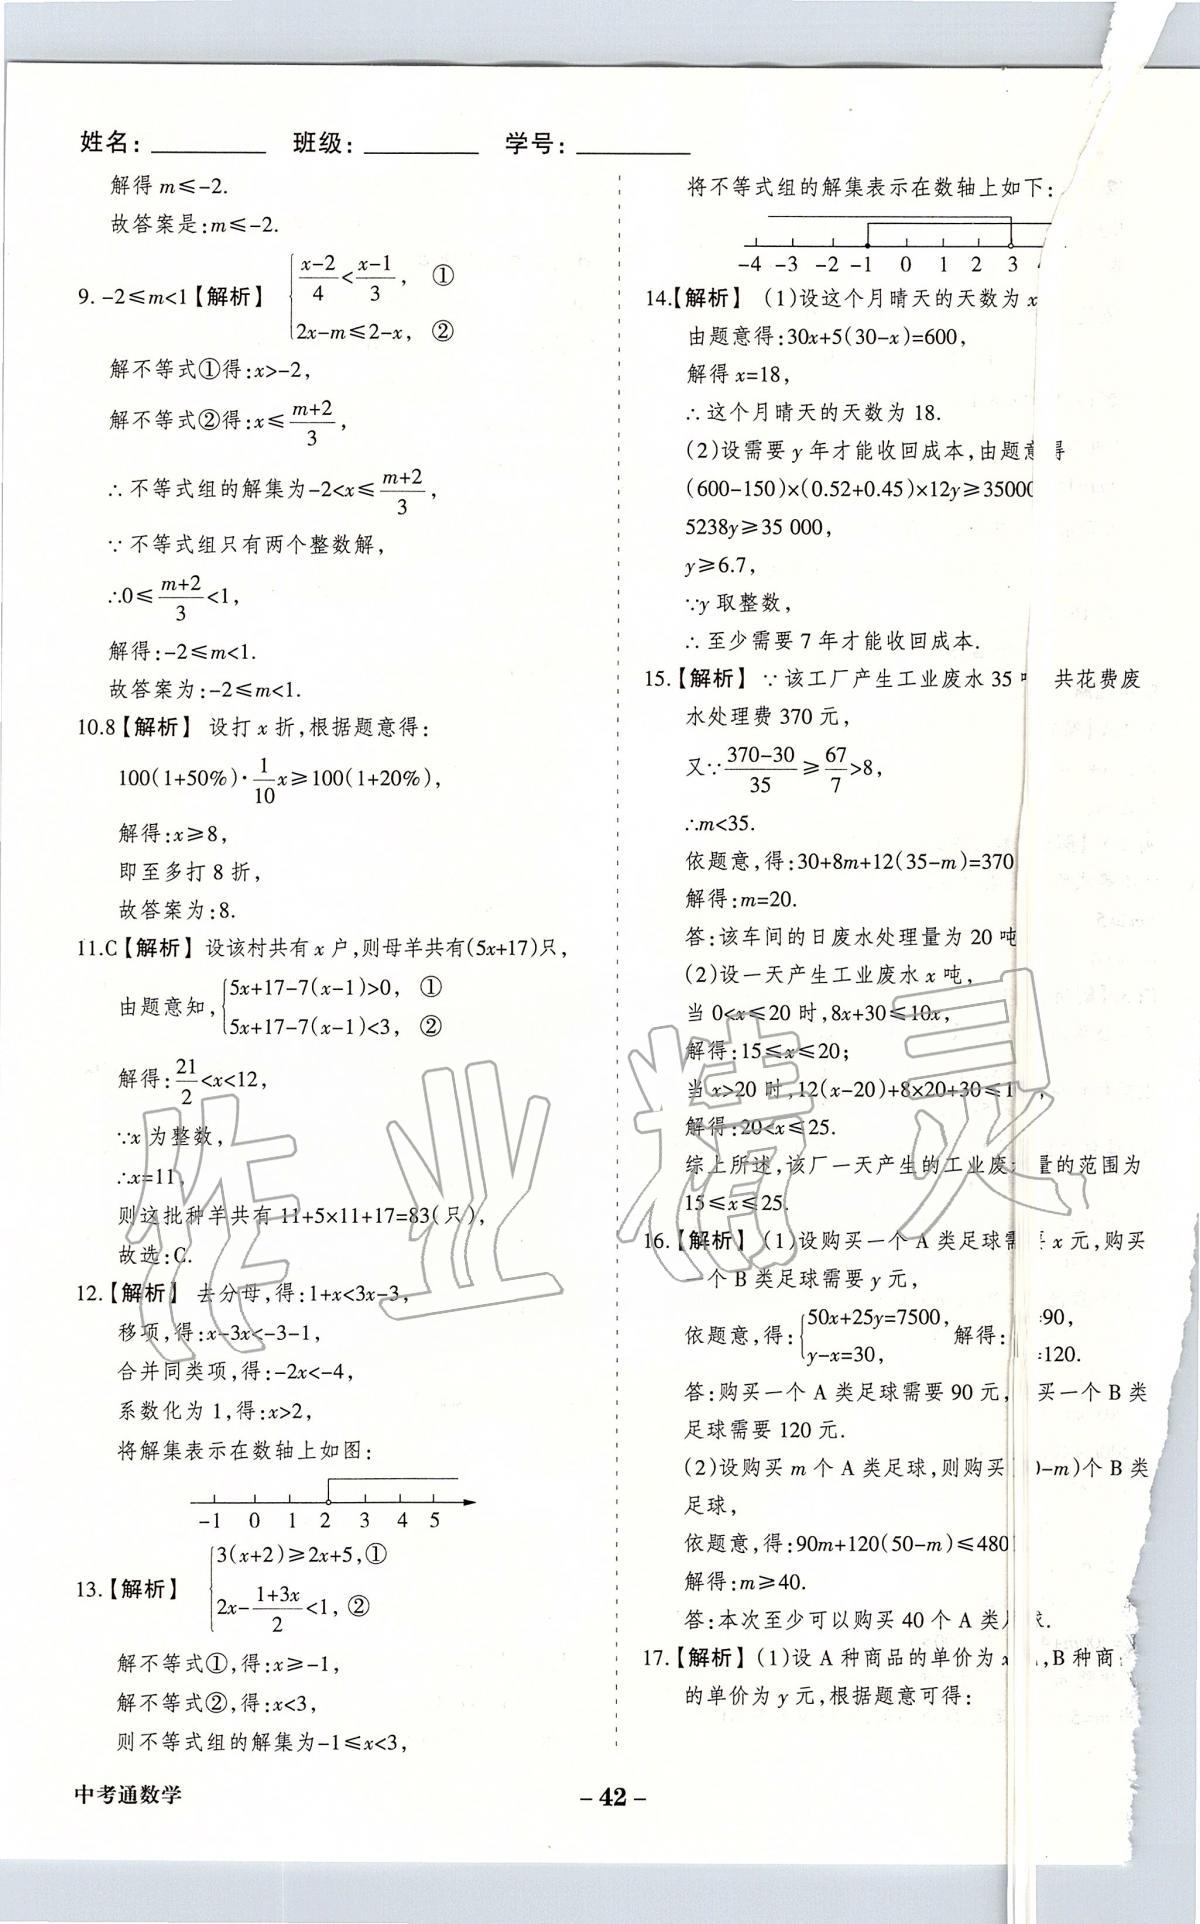 姓名：________ 班级：________ 学号：________
解得 m≤-2.
故答案是:m≤-2.
9. -2≤m<1【解析】 { (x-2)/4<(x-1)/3, ①
2x-m≤2-x, ②
解不等式①得:x>-2,
解不等式②得:x≤(m+2)/3,
∴不等式组的解集为-2<x≤(m+2)/3,
∵不等式组只有两个整数解,
∴0≤(m+2)/3<1,
解得:-2≤m<1.
故答案为:-2≤m<1.
10.8【解析】 设打 x 折,根据题意得:
100(1+50%)·1/10 x≥100(1+20%),
解得:x≥8,
即至多打 8 折,
故答案为:8.
11.C【解析】设该村共有 x 户,则母羊共有(5x+17)只,
由题意知, { 5x+17-7(x-1)>0, ①
5x+17-7(x-1)<3, ②
解得:21/2<x<12,
∵x 为整数,
∴x=11,
则这批种羊共有 11+5×11+17=83(只),
故选:C.
12.【解析】 去分母,得:1+x<3x-3,
移项,得:x-3x<-3-1,
合并同类项,得:-2x<-4,
系数化为 1,得:x>2,
将解集表示在数轴上如图:
-1 0 1 2 3 4 5
13.【解析】 { 3(x+2)≥2x+5,①
2x-(1+3x)/2<1, ②
解不等式①,得:x≥-1,
解不等式②,得:x<3,
则不等式组的解集为-1≤x<3,
将不等式组的解集表示在数轴上如下:
-4 -3 -2 -1 0 1 2 3
14.【解析】 (1)设这个月晴天的天数为 x
由题意得:30x+5(30-x)=600,
解得 x=18,
∴这个月晴天的天数为 18.
(2)设需要 y 年才能收回成本,由题意得
(600-150)×(0.52+0.45)×12y≥35000
5238y≥35 000,
y≥6.7,
∵y 取整数,
∴至少需要 7 年才能收回成本.
15.【解析】 ∵该工厂产生工业废水 35 共花费废
水处理费 370 元,
又∵(370-30)/35≥67/7>8,
∴m<35.
依题意,得:30+8m+12(35-m)=370
解得:m=20.
答:该车间的日废水处理量为 20 吨
(2)设一天产生工业废水 x 吨,
当 0<x≤20 时,8x+30≤10x,
解得:15≤x≤20;
当 x>20 时,12(x-20)+8×20+30≤1 ,
解得:20<x≤25.
综上所述,该厂一天产生的工业废 量的范围为
15≤x≤25.
16.【解析】 (1)设购买一个 A 类足球需要 x 元,购买
个 B 类足球需要 y 元,
依题意,得: { 50x+25y=7500, 解得: =90,
y-x=30, =120.
答:购买一个 A 类足球需要 90 元, 买一个 B 类
足球需要 120 元.
(2)设购买 m 个 A 类足球,则购买 -m)个 B 类
足球,
依题意,得:90m+120(50-m)≤480
解得:m≥40.
答:本次至少可以购买 40 个 A 类 球.
17.【解析】(1)设 A 种商品的单价为 x ,B 种商
的单价为 y 元,根据题意可得:
中考通数学
- 42 -
作业精灵